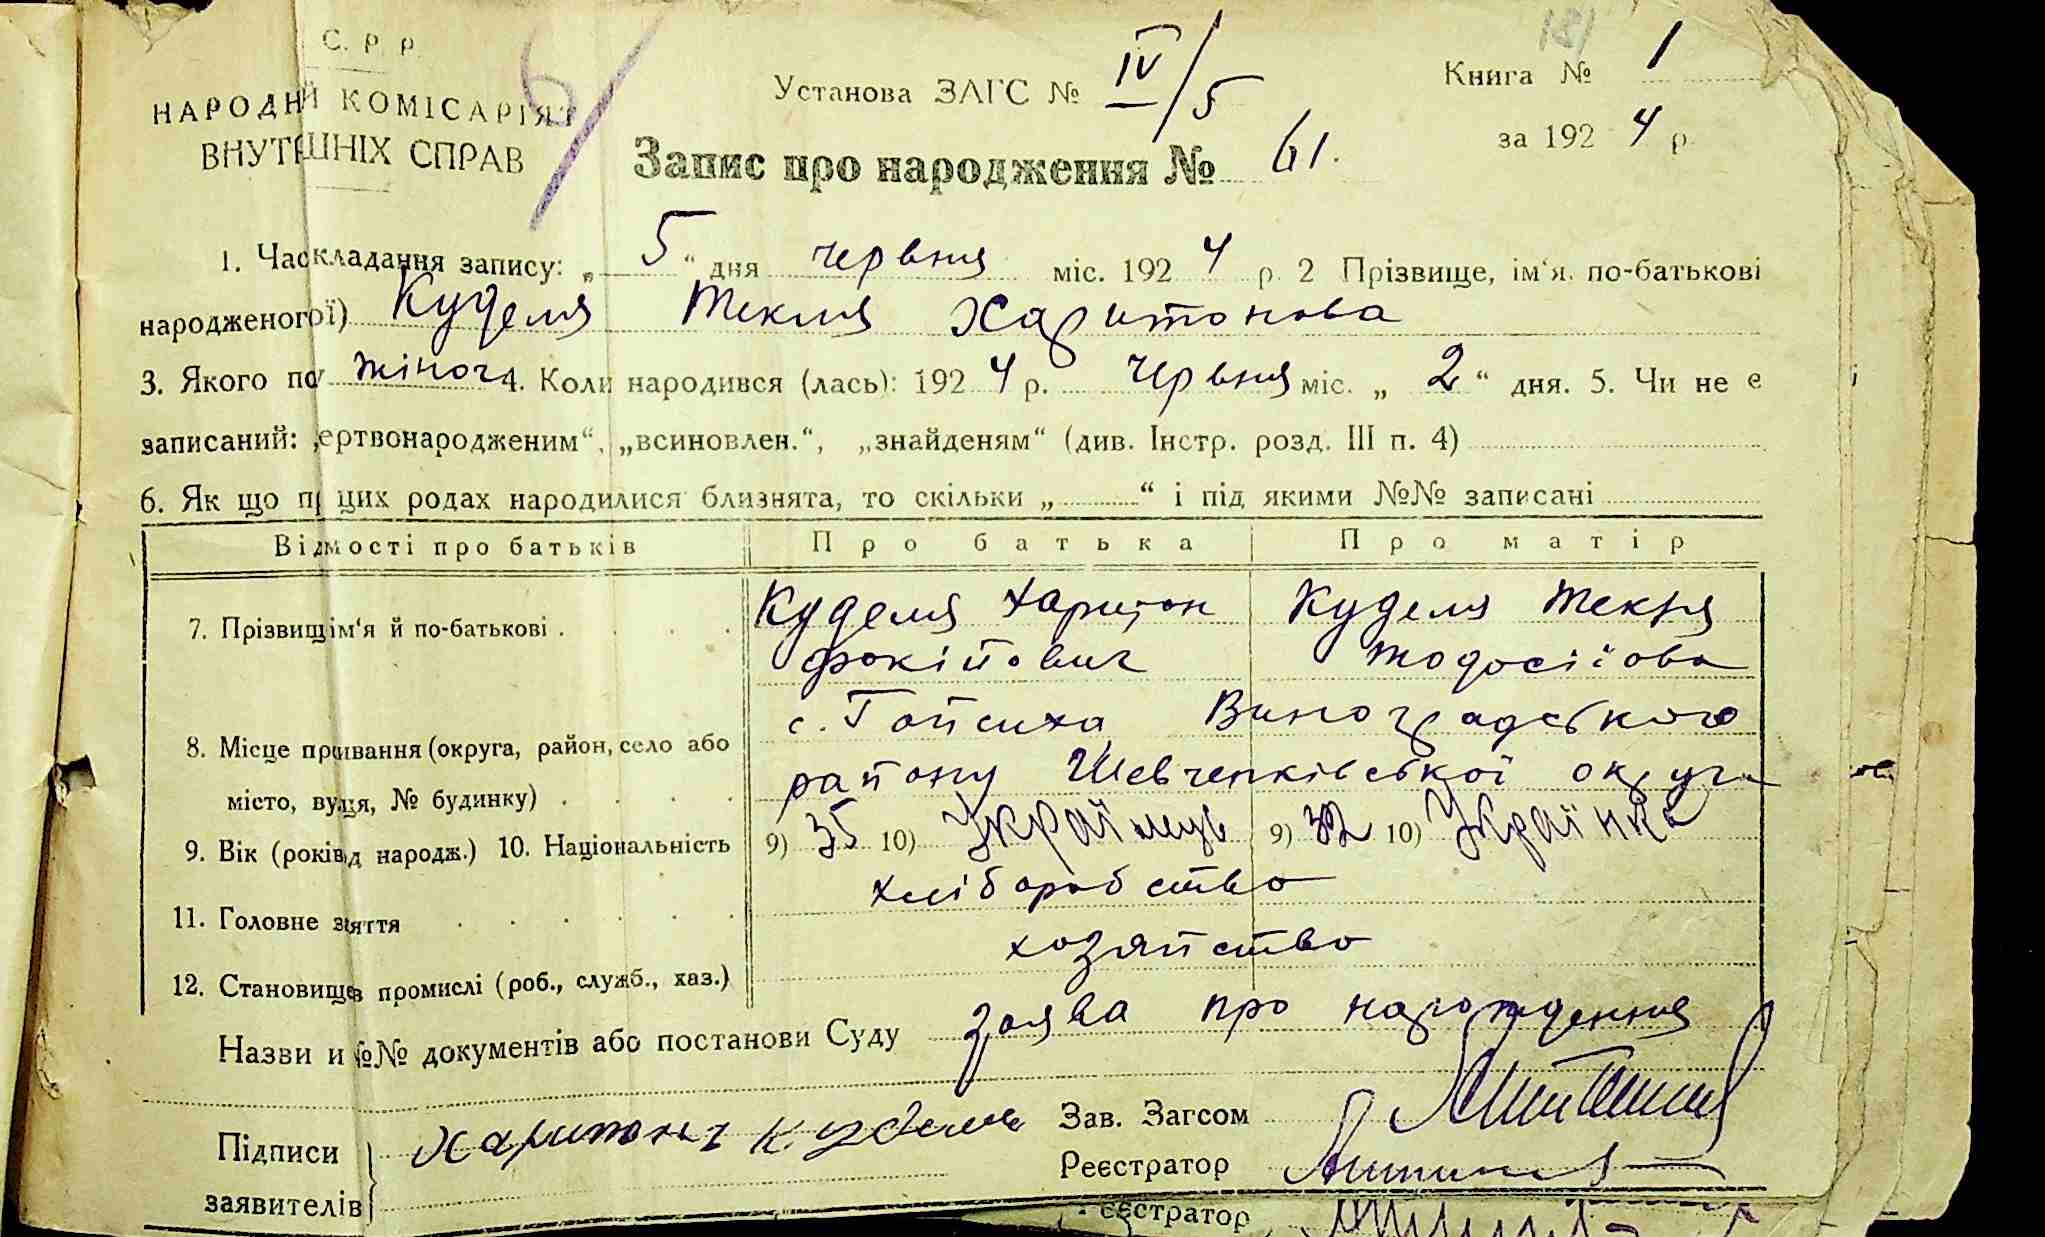 С. р р
НАРОДНИЙ КОМІСАРІЯТ
ВНУТРІШНІХ СПРАВ
Установа ЗАГС № IV/5
Книга № 1
за 1924 р.
Запис про народження № 61.
1. Час складання запису: „5“ дня червня міс. 1924 р. 2 Прізвище, ім‘я. по-батькові
народженого(ої) Куделя Текля Харитонова
3. Якого пол жіноч 4. Коли народився (лась): 1924 р. червня міс. „2“ дня. 5. Чи не є
записаний: „мертвонародженим“, „всиновлен.“, „знайденям“ (див. Інстр. розд. III п. 4)
6. Як що при цих родах народилися близнята, то скільки „ “ і під якими №№ записані
Відомості про батьків Про батька Про матір
7. Прізвище, ім‘я й по-батькові . Куделя Харитон Куделя Текля
Фокійович Тодосійова
8. Місце пробування (округа, район, село або с. Гопсиха Виноградського
місто, вулиця, № будинку) . району Шевченківської округи
9. Вік (років від народж.) 10. Національність 9) 35 10) Українець 9) 32 10) Українка
11. Головне заняття хліборобство
12. Становище в промислі (роб., служб., хаз.) хозяйство
Назви и №№ документів або постанови Суду заява про народження
Підписи
заявителів Харитон Куделя
Зав. Загсом
Реєстратор
еєстратор